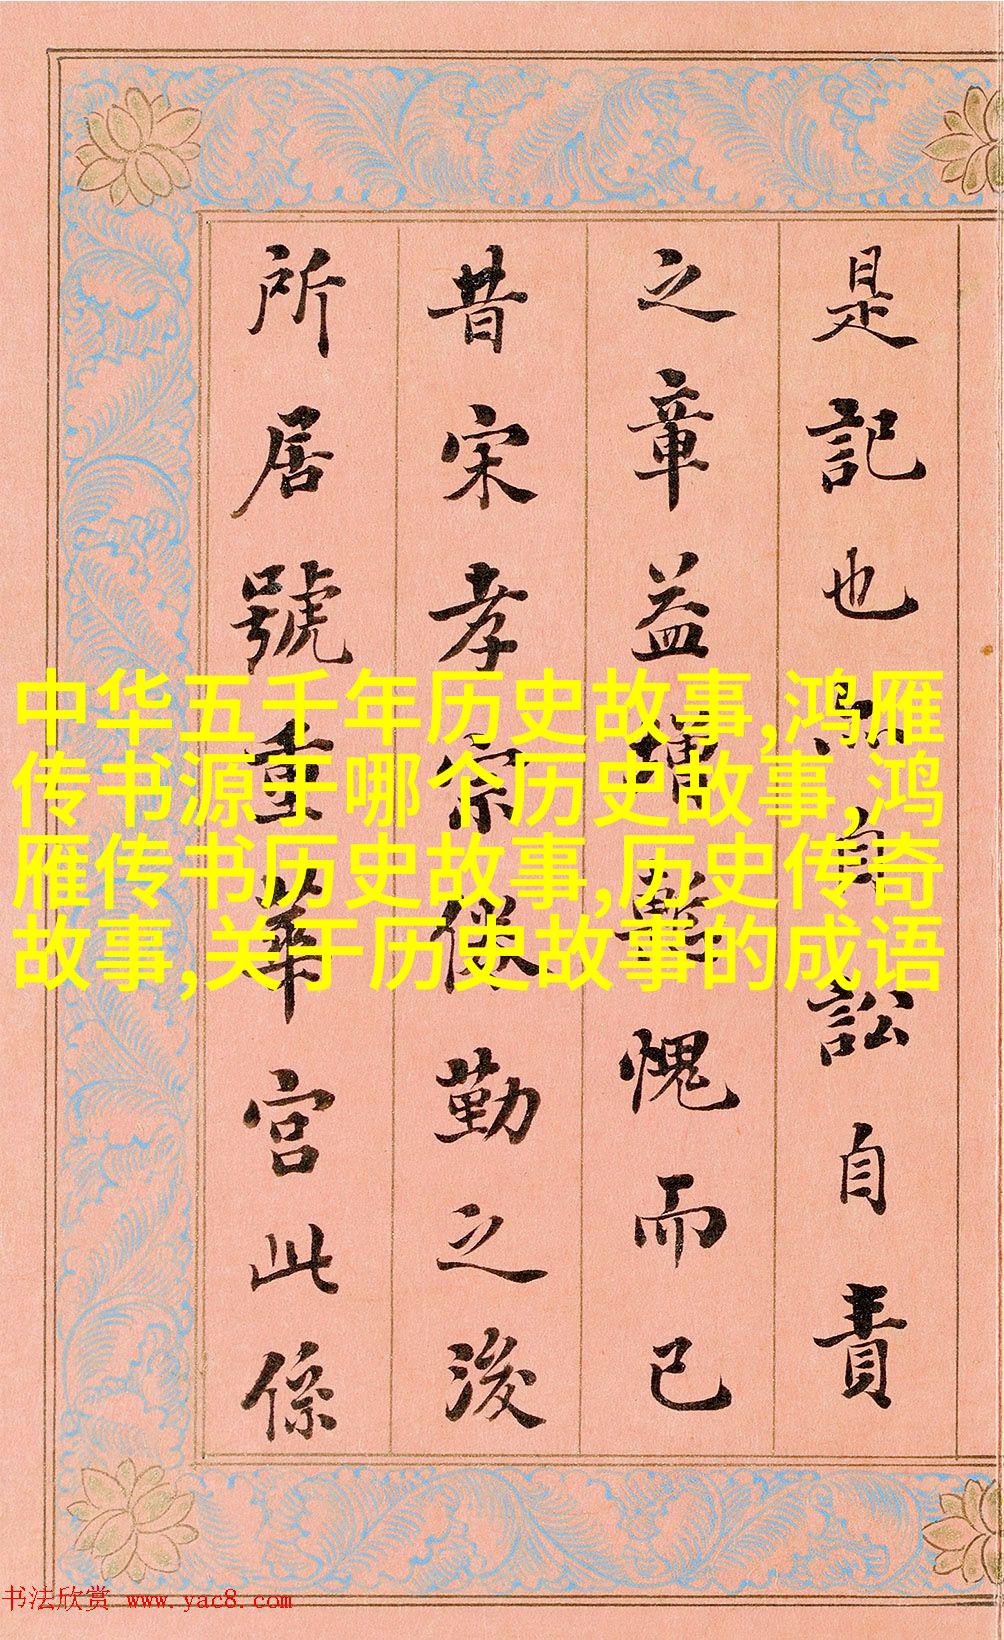 是記也自訟自責
之章益增慙愧而已
昔宋孝宗倦勤之後
所居號重華宮此係
中华五千年历史故事,鸿雁
传书源于哪个历史故事,鸿
雁传书历史故事,历史传奇
故事,关于历史故事的成语
书法欣赏 www.yac8.com